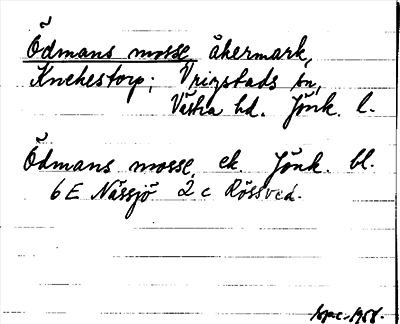 Ödmans mosse, åkermark,
Knekestorp; Vrigstads sn,
Västra hd. Jönk. l.
Ödmans mosse, ek. Jönk. bl.
6 E Nässjö 2 c Rössved.